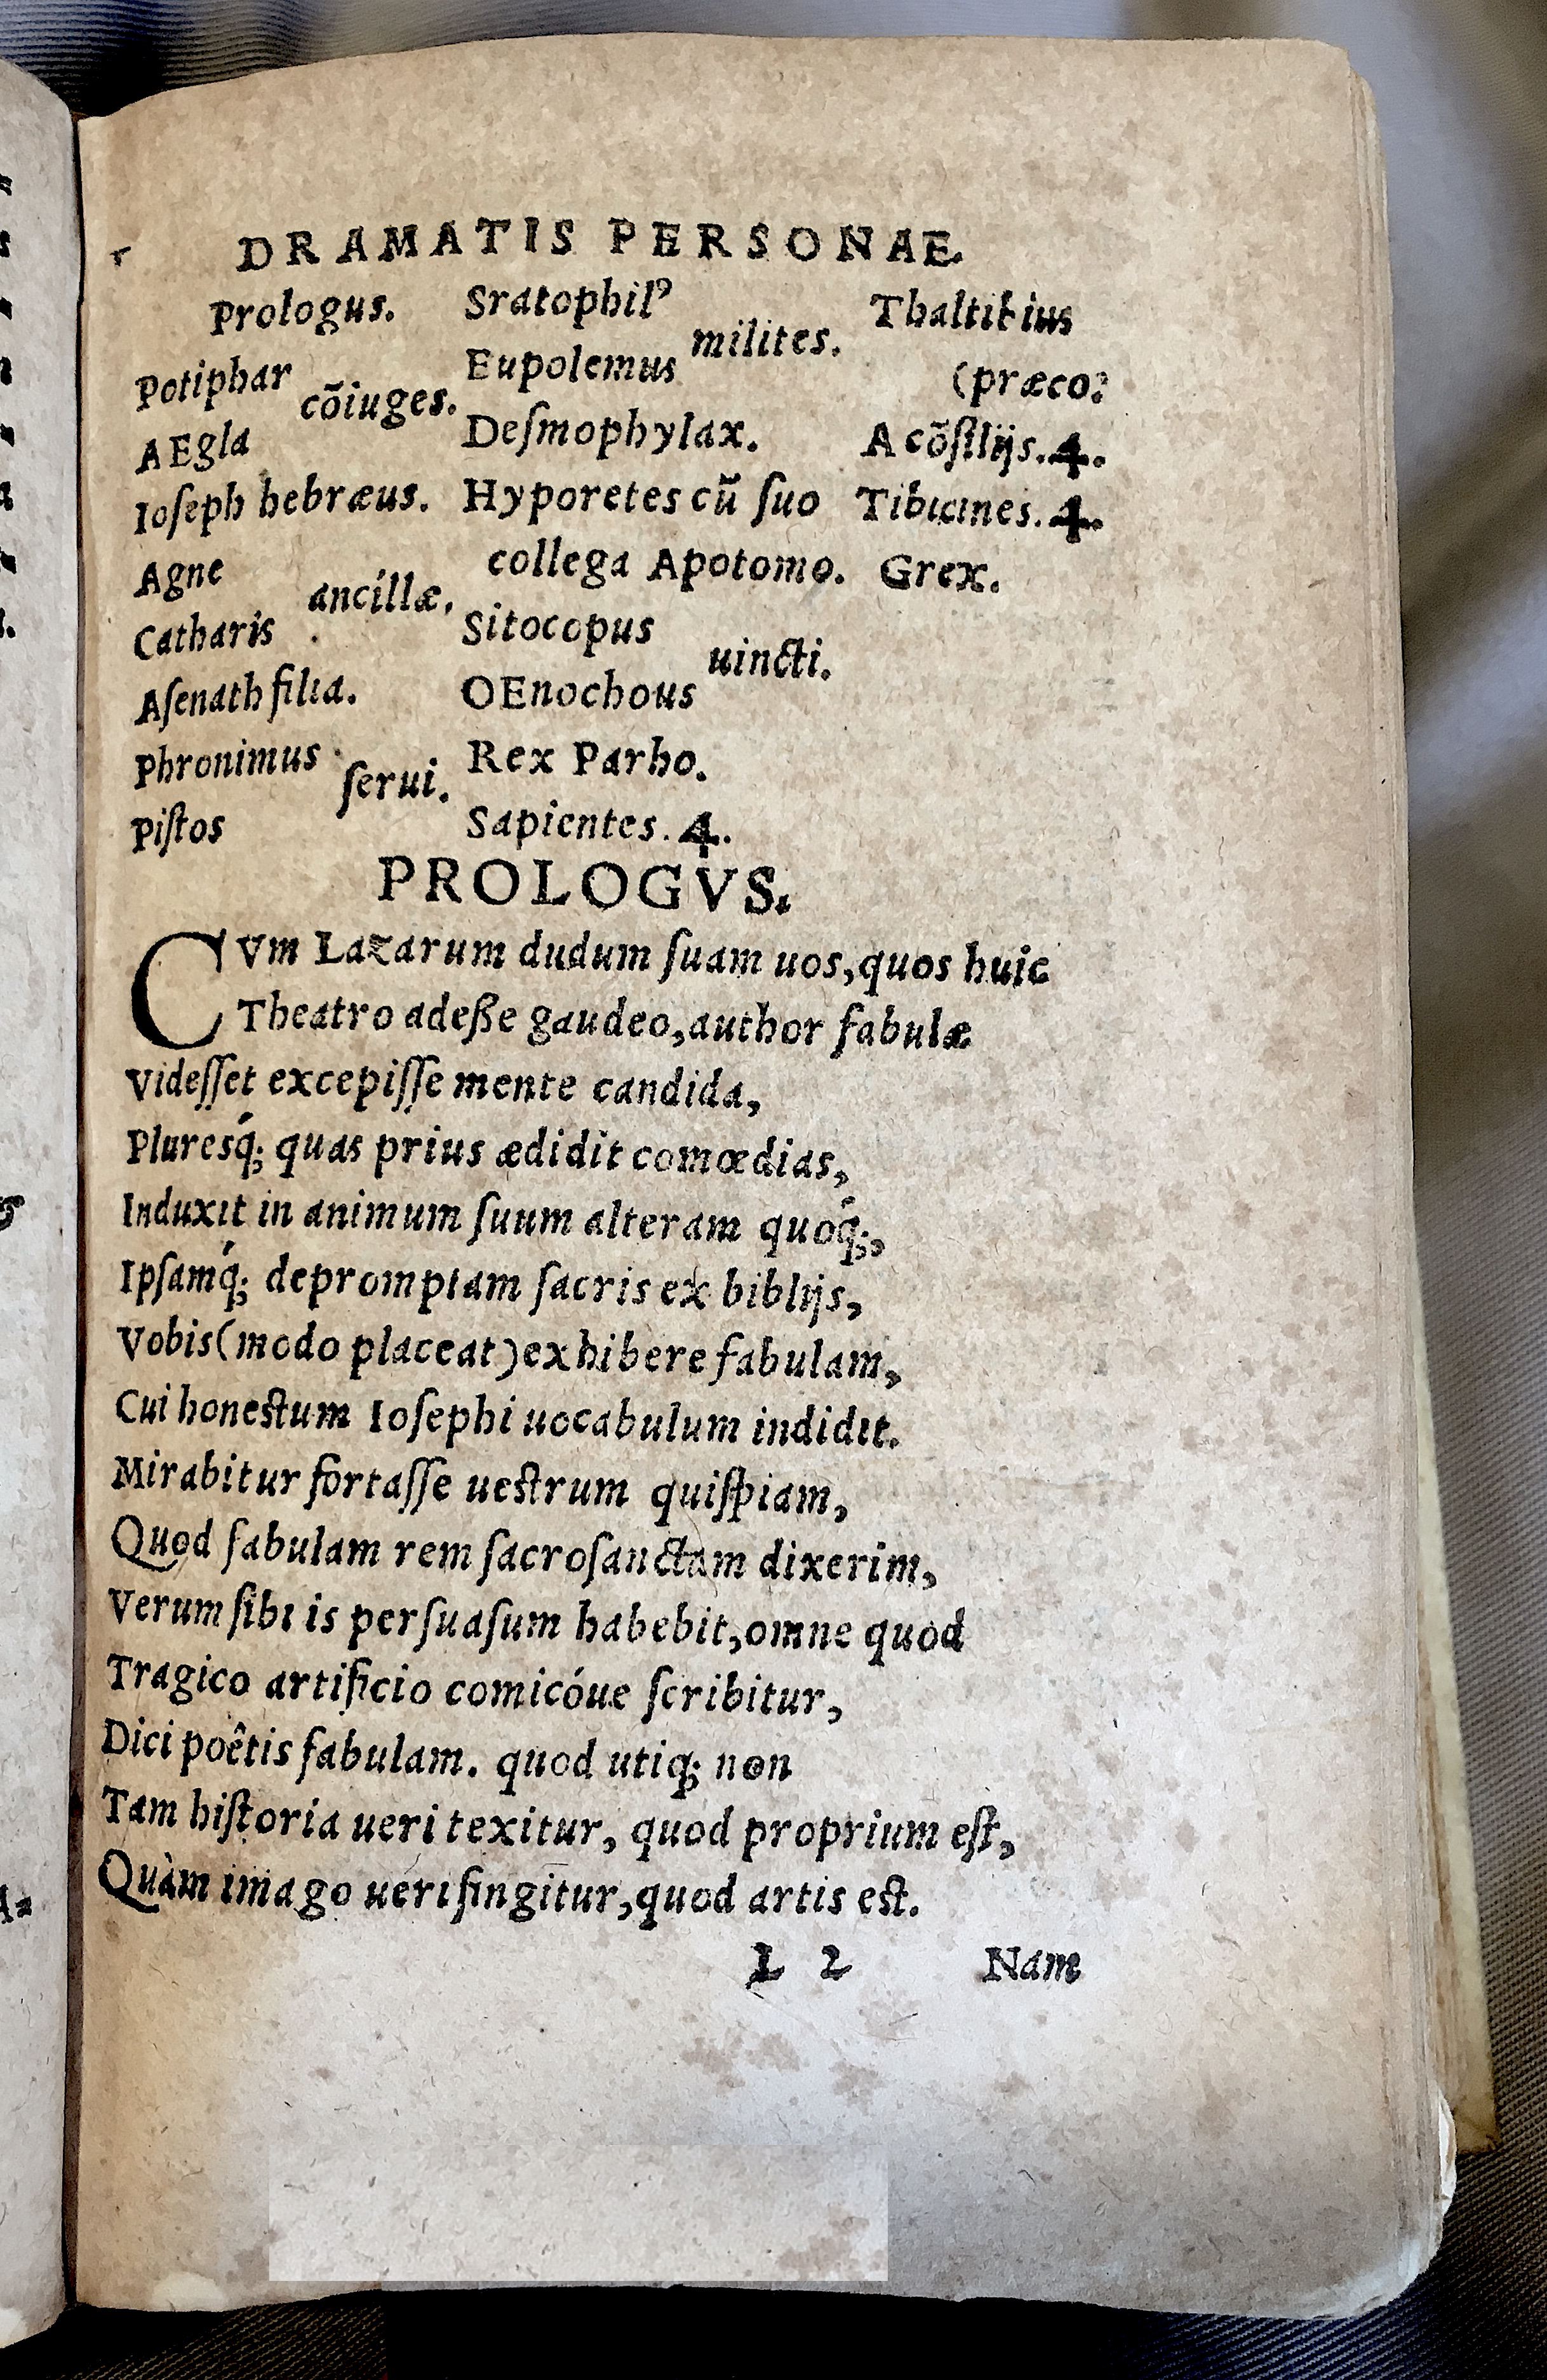 DRAMATIS PERSONAE.
Prologus.
Potiphar
cõiuges.
AEgla
Ioſeph hebræus.
Agne
ancillæ.
Catharis
Aſenath filia.
Phronimus
ſerui.
Piſtos
Sratophilꝰ
milites.
Eupolemus
Deſmophylax.
Hyporetes cũ ſuo
collega Apotomo.
Sitocopus
uincti.
OEnochous
Rex Parho.
Sapientes. 4.
Thaltibius
(præco:
A cõſilijs. 4.
Tibicines. 4.
Grex.
PROLOGVS.
CVm Lazarum dudum ſuam uos, quos huic
Theatro adeſſe gaudeo, author fabulæ
Videſſet excepiſſe mente candida,
Pluresq́; quas prius ædidit comœdias,
Induxit in animum ſuum alteram quoq́;,
Ipſamq́; depromptam ſacris ex biblijs,
Vobis (modo placeat) exhibere fabulam,
Cui honestum Ioſephi uocabulum indidit.
Mirabitur fortaſſe uestrum quiſpiam,
Quod fabulam rem ſacroſanctam dixerim,
Verum ſibi is perſuaſum habebit, omne quod
Tragico artificio comicóue ſcribitur,
Dici poêtis fabulam. quod utiq; non
Tam hiſtoria ueri texitur, quod proprium eſt,
Quàm imago ueri fingitur, quod artis est.
L 2 Nam